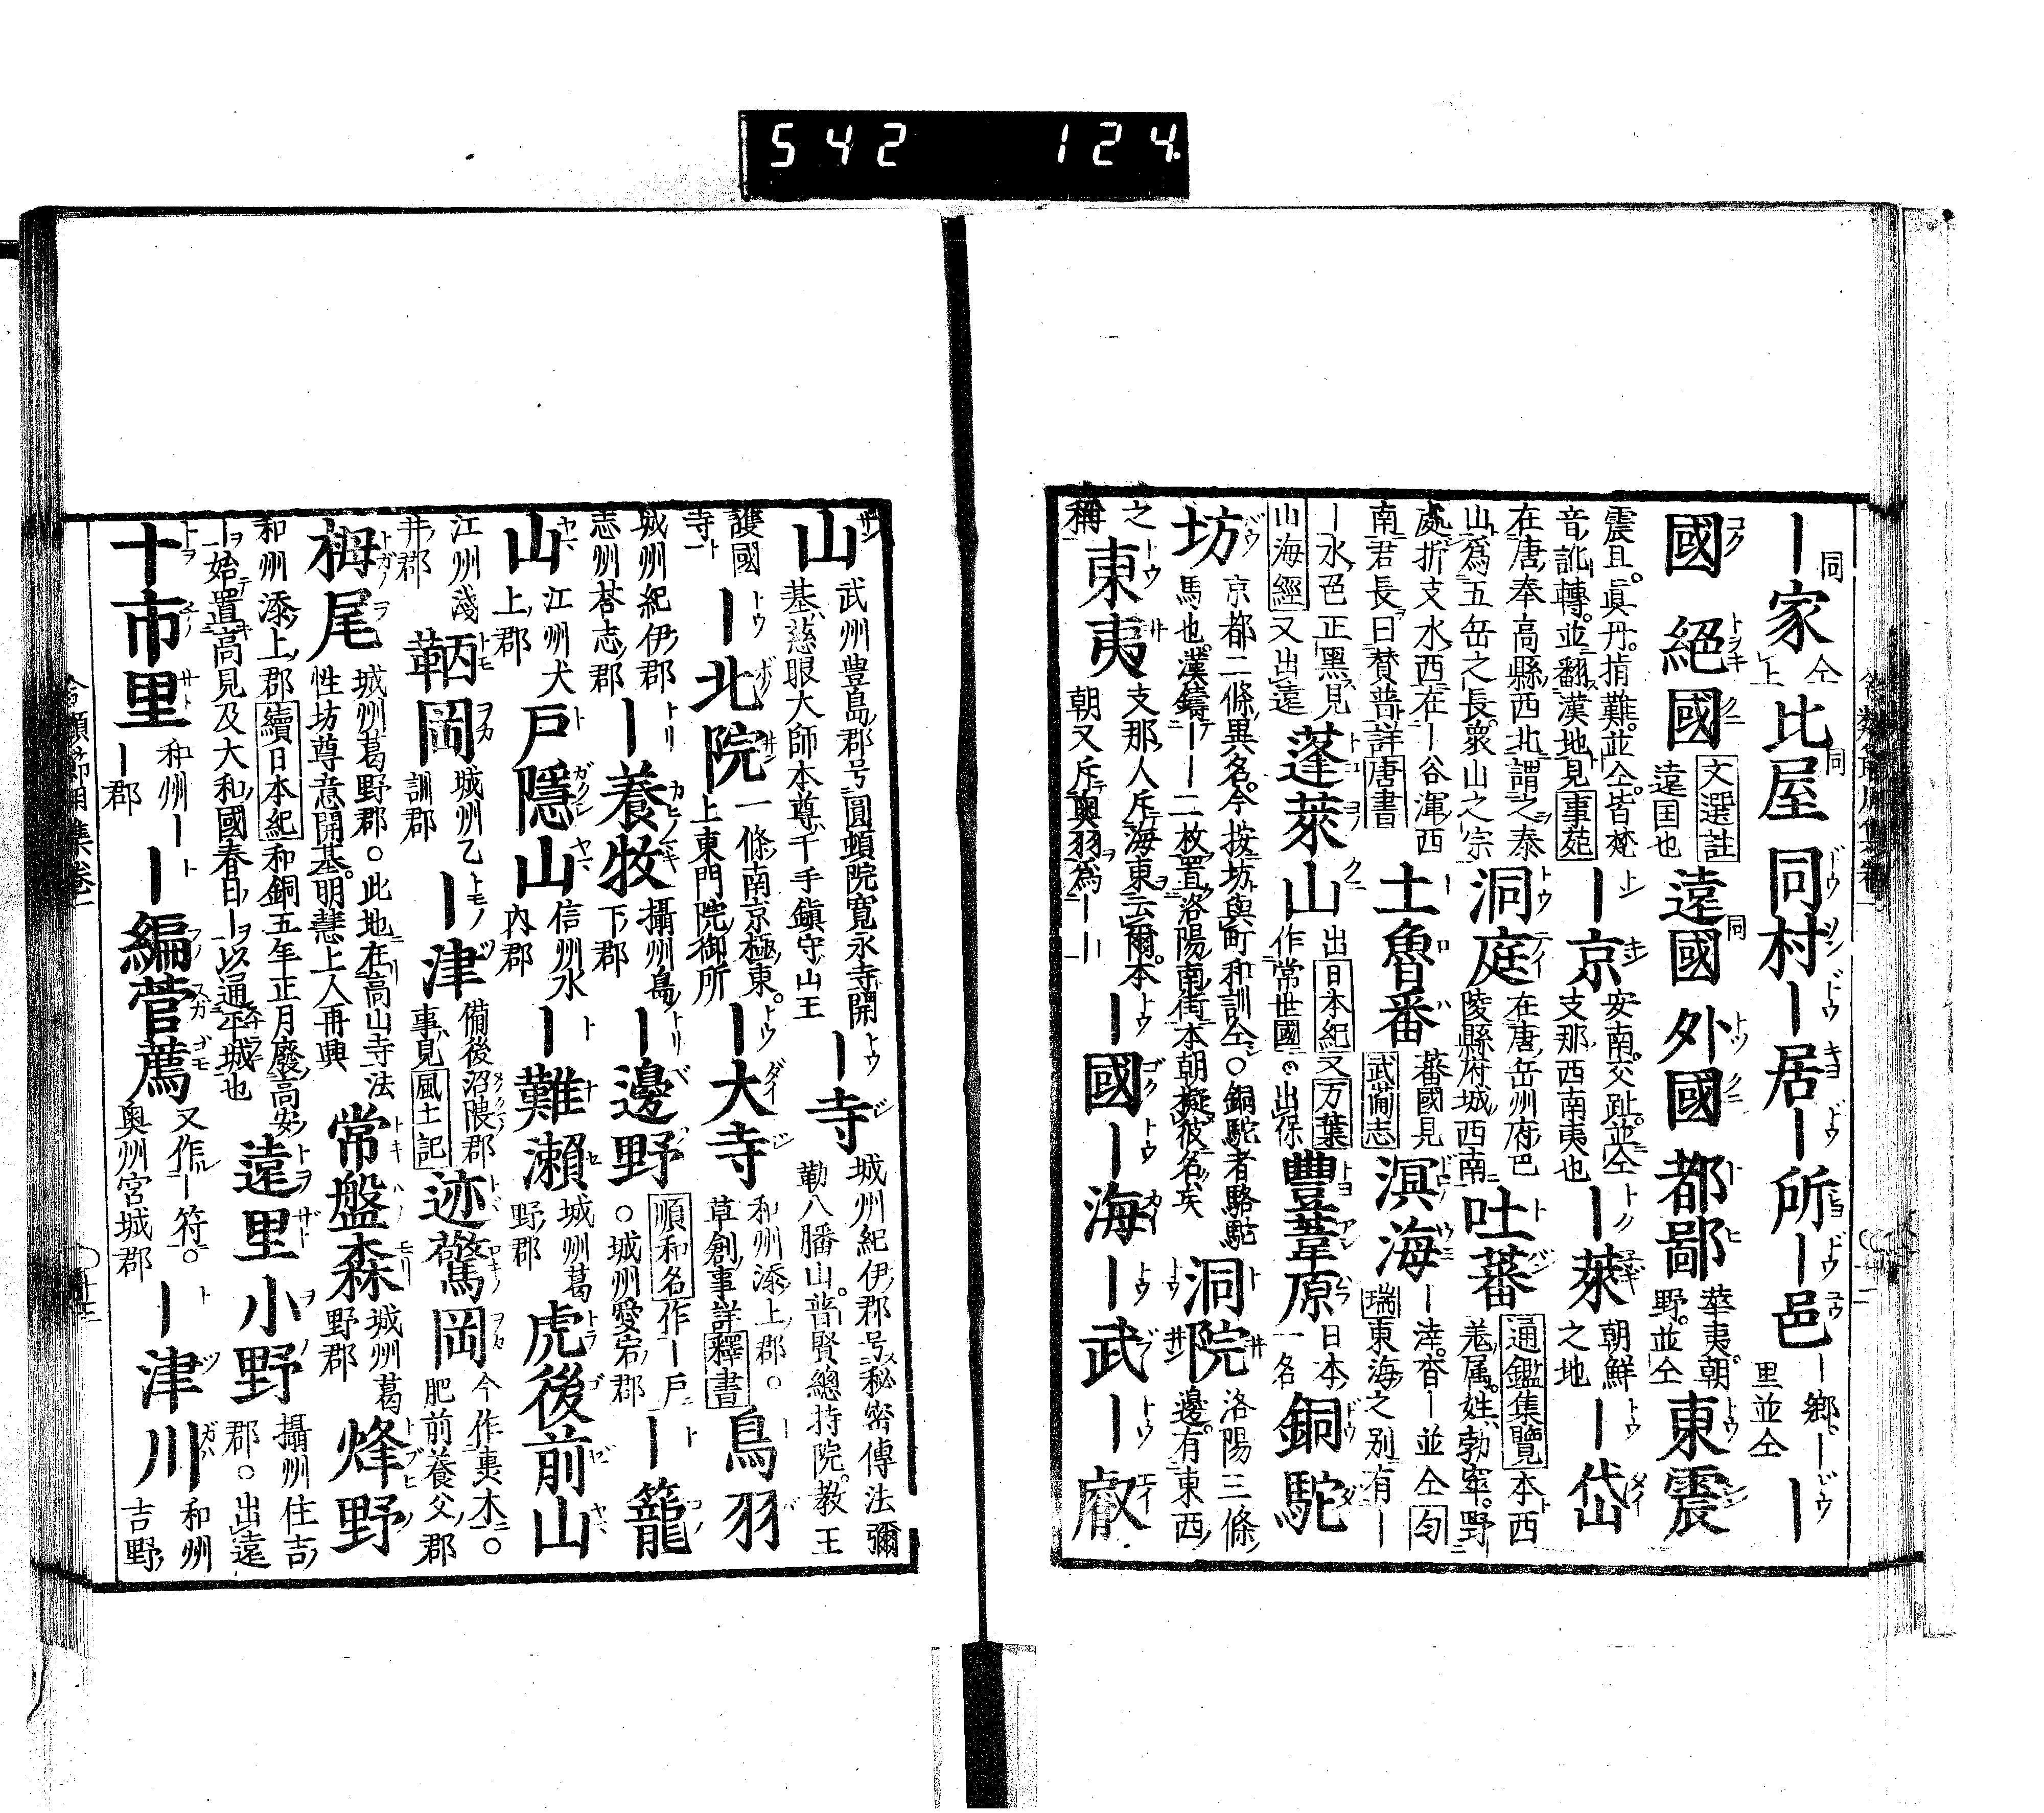 542 124.
｜家 仝上 比屋 同村 ｜居 ｜所 ｜邑 ｜郷｜里並仝 ｜
國 絕國 文選註 遠国也 遠國 外國 都鄙 華夷朝野並仝 東震
震旦眞丹指難並仝皆梵音訛轉並翻漢地見事苑 ｜京 安南交趾並仝支那西南夷也 ｜萊 朝鮮之地 ｜岱
在唐奉高縣西北謂之泰山為五岳之長衆山之宗 洞庭 在唐岳州府巴陵縣府城西南 吐蕃 通鑑集覽本西羗属姓勃窣野
處折支水西在｜谷渾西南君長曰賛普詳唐書 土魯番 蕃國見武備志 溟海 ｜涬杳｜並仝匀瑞東海之別有｜
｜水色正黒見山海經又出遠 蓬萊山 出日本紀又万葉作常世國出保 豐葦原 日本一名 銅駝
坊 京都二條異名今按坊與町和訓仝○銅駝者駱駝馬也漢鑄｜｜二枚置洛陽南街本朝擬彼名矣 洞院 洛陽三條邊有東西
之稱 東夷 支那人斥海東云爾本朝又斥奥羽為｜｜ ｜國 ｜海 ｜武 ｜叡
山 武州豊島郡号圓頓院寛永寺開基慈眼大師本尊千手鎮守山王 ｜寺 城州紀伊郡号秘密傳法彌勒八幡山普賢總持院教王
護國寺 ｜北院 一條南京極東上東門院御所 ｜大寺 和州添上郡○草創事詳釋書 鳥羽
城州紀伊郡志州荅志郡 ｜養牧 攝州島下郡 ｜邊野 順和名作｜戸○城州愛宕郡 ｜籠
山 江州犬上郡 戸隱山 信州水内郡 ｜難瀬 城州葛野郡 虎後前山
江州淺井郡 鞆岡 城州乙訓郡 ｜津 備後沼隈郡事見風土記 迹驚岡 今作轟木○肥前養父郡
栂尾 城州葛野郡○此地在高山寺法性坊尊意開基明慧上人再興 常盤森 城州葛野郡 烽野
和州添上郡續日本紀和銅五年正月廢高安｜始置高見及大和國春日｜以通平城也 遠里小野 攝州住吉郡○出遠
十市里 和州｜｜郡 ｜編菅薦 又作｜符○奥州宮城郡 ｜津川 和州吉野